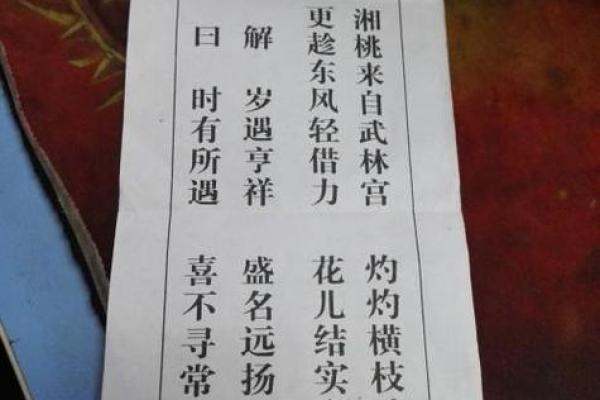 湘桃来自武林宫 灼灼横枝
更趁东风轻借力 花儿结实
解 岁遇亨祥 盛名远扬
曰 时有所遇 喜不寻常